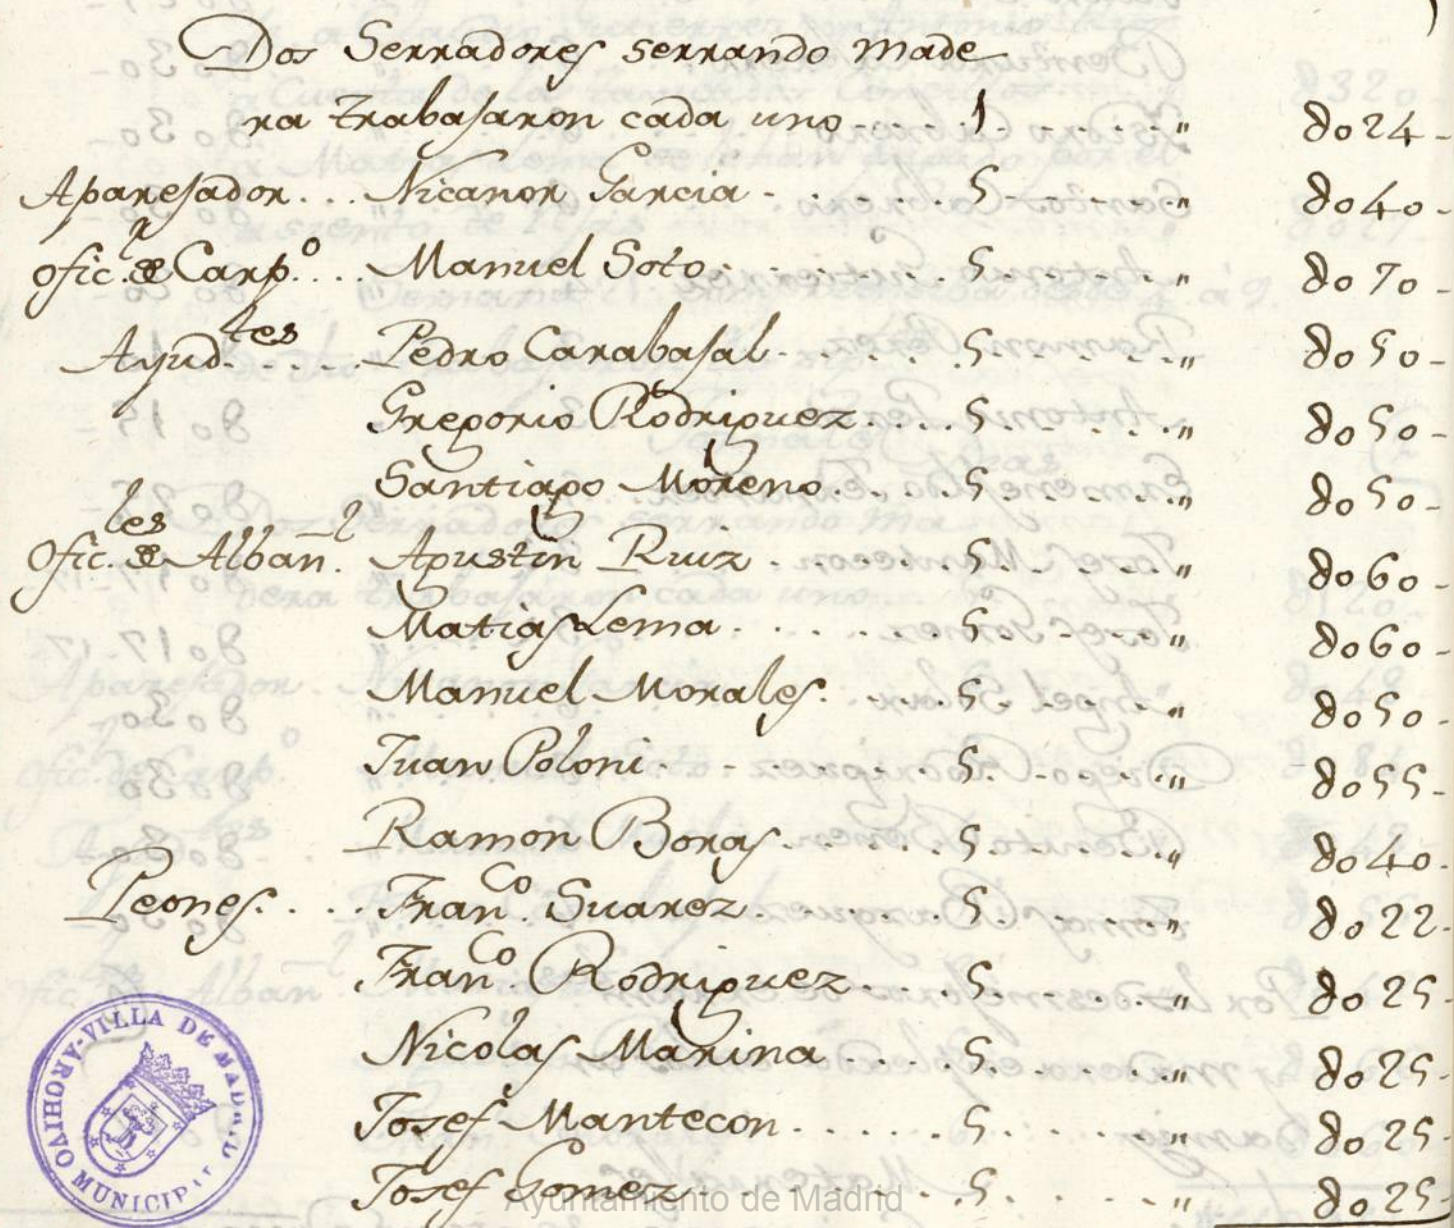 Dos Serradores serrando made
ra trabajaron cada uno.....1......" 8o24-
Aparejador... Nicanor Garcia.......5......." 8o40-
Ofic.l de Carp.o.... Manuel Soto.......5......." 8o70-
Ayud.tes..... Pedro Carabajal.......5......." 8o50-
Gregorio Rodriguez....5......." 8o50-
Santiago Moreno.....5......." 8o50-
Ofic.les de Albañ.l Agustin Ruiz.......5......." 8o60-
Matias Lema.......5......." 8o60-
Manuel Morales.....5......." 8o50-
Juan Poloni.......5......." 8o55-
Ramon Boras.......5......." 8o40-
Peones.... Fran.co Suarez.......5......." 8o22-
Fran.co Rodriguez....5......." 8o25-
Nicolas Marina....5......." 8o25-
Josef Mantecon......5......." 8o25-
Josef Gomez.......5......." 8o25-
ARCHIVO-VILLA DE MADRID
MUNICIPAL
Ayuntamiento de Madrid